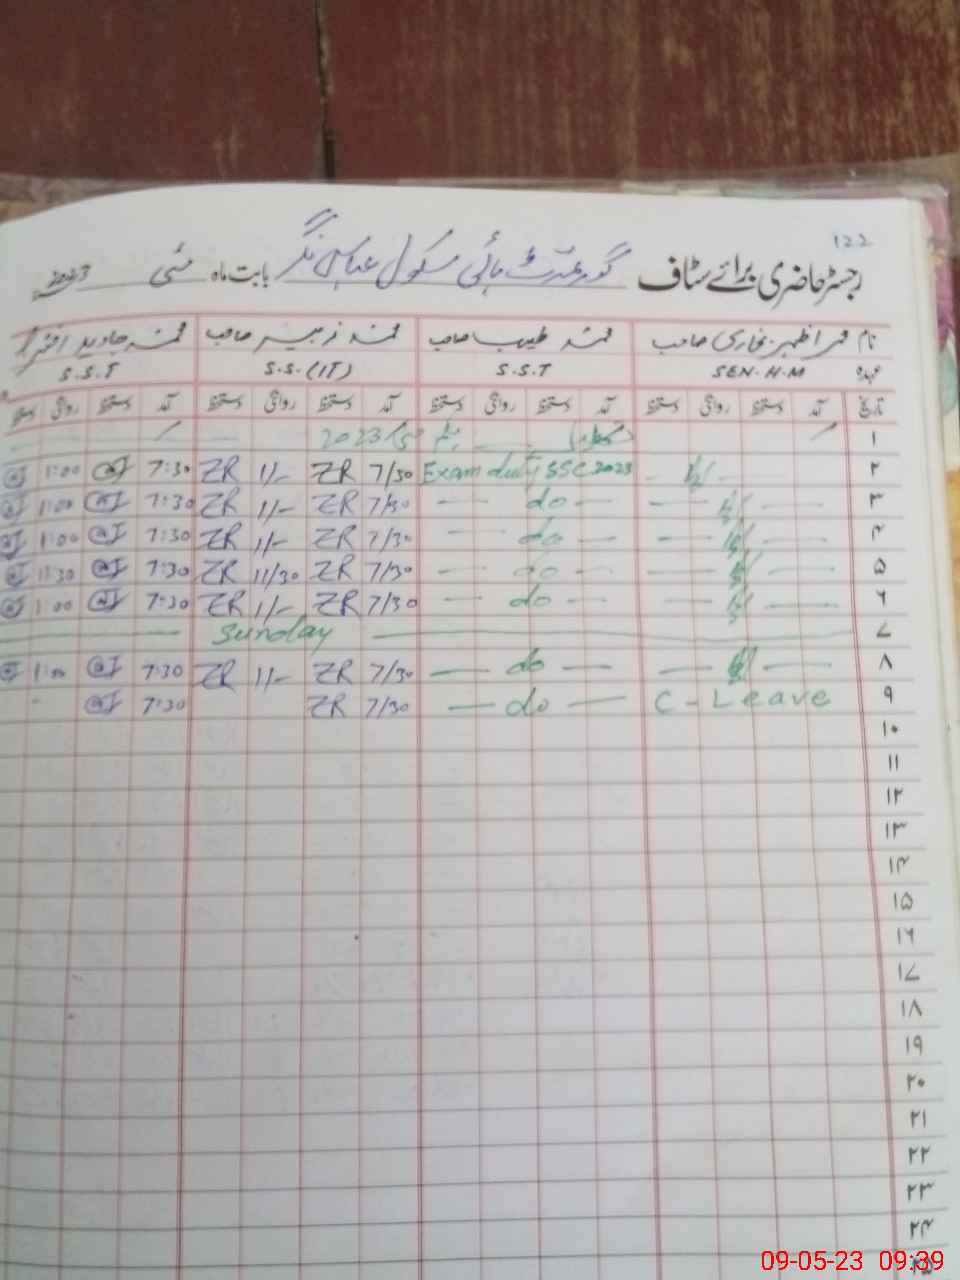 122
رجسٹر حاضری برائے سٹاف گورنمنٹ ہائی سکول عباس نگر بابت ماہ مئی 2023
نام محمد اظہر بخاری صاحب محمد طیب صاحب محمد زبیر صاحب محمد جاوید اختر
عہدہ SEN-H-M S.S.T S.S.(IT) S.S.T
تاریخ آمد دستخط روانگی دستخط آمد دستخط روانگی دستخط آمد دستخط روانگی دستخط آمد دستخط روانگی دستخط
۱ تعطیل یکم مئی 2023
۲ Exam duty SSC 2023 7/30 ZR 1/- ZR 7:30 1:00
۳ do 7/30 ZR 1/- ZR 7:30 1:00
۴ do 7/30 ZR 1/- ZR 7:30 1:00
۵ do 7/30 ZR 11/30 ZR 7:30 11:30
۶ do 7/30 ZR 1/- ZR 7:30 1:00
۷ Sunday
۸ do 7/30 ZR 1/- ZR 7:30 1:00
۹ C-Leave do 7/30 ZR 7:30
۱۰
۱۱
۱۲
۱۳
۱۴
۱۵
۱۶
۱۷
۱۸
۱۹
۲۰
۲۱
۲۲
۲۳
۲۴
۲۵
09-05-23 09:39